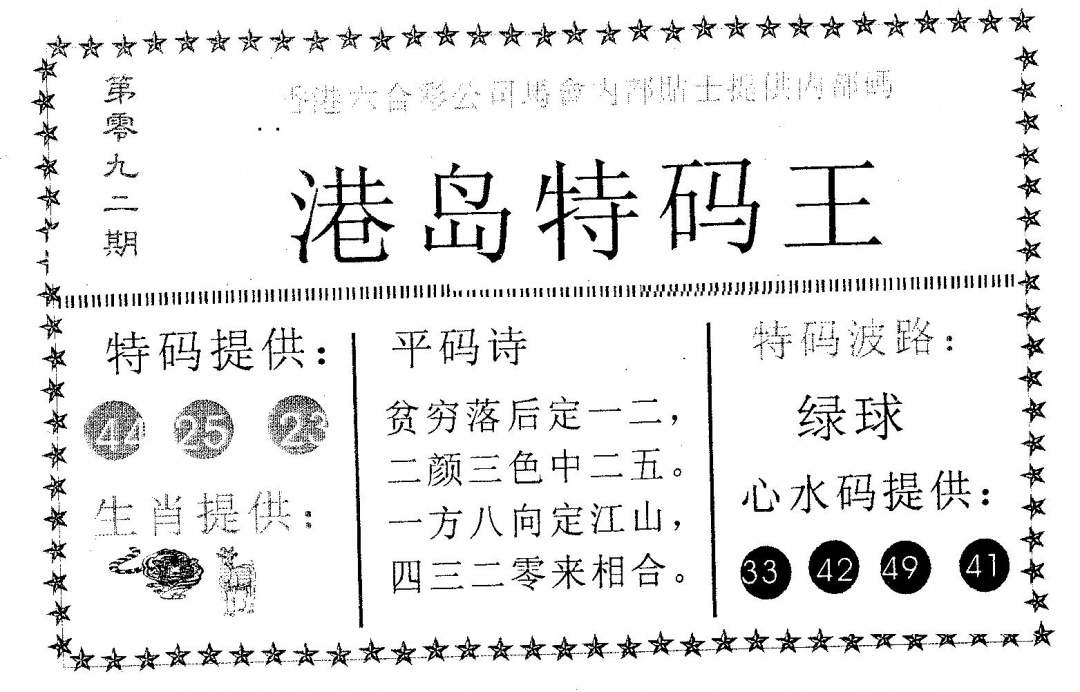 第零九二期
香港六合彩公司馬會内部贴士提供内部碼
港岛特码王
特码提供：
44 25 23
生肖提供：
平码诗
贫穷落后定一二，
二颜三色中二五。
一方八向定江山，
四三二零来相合。
特码波路：
绿球
心水码提供：
33 42 49 41